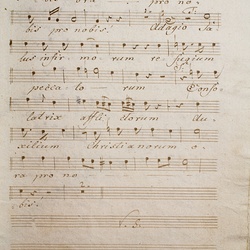 ora pro no-
bis pro nobis. Adagio Sa
lus infir morum refugium
pecca to rum Conso
latrix affli ctorum au-
xilium Christianorum o
ra pro no
bis.